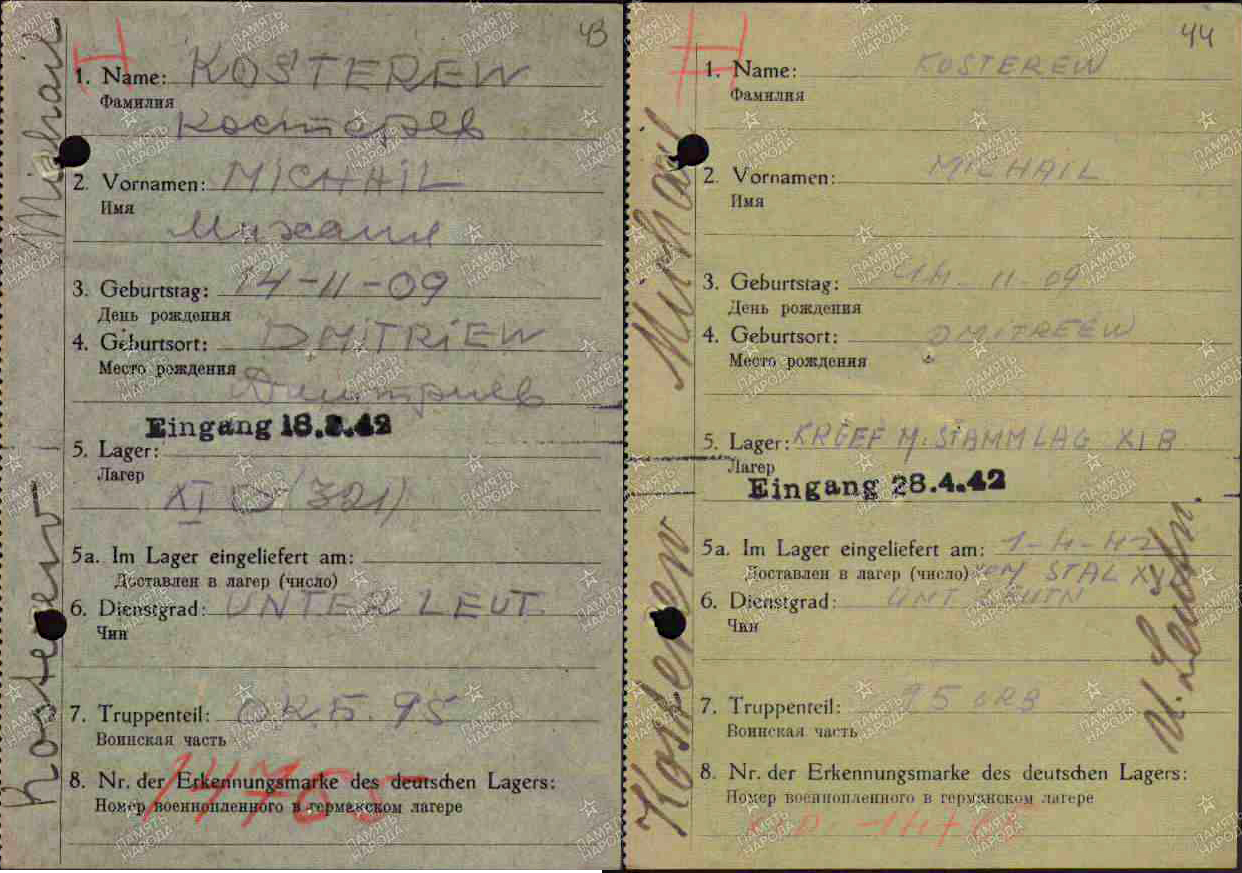 43
1. Name: KOSTEREW
Фамилия
Костерев
2. Vornamen: MICHAIL
Имя
Михаил
3. Geburtstag: 14-11-09
День рождения
4. Geburtsort: DMITRIEW
Место рождения
Дмитриев
Eingang 18.2.42
5. Lager:
Лагер
XI D/321/
5a. Im Lager eingeliefert am:
Доставлен в лагер (число)
6. Dienstgrad: UNTER LEUT.
Чин
7. Truppenteil: ОРБ. 95
Воинская часть
8. Nr. der Erkennungsmarke des deutschen Lagers:
Номер военнопленного в германском лагере
Kosterew Michail
44
1. Name: KOSTEREW
Фамилия
2. Vornamen: MICHAIL
Имя
3. Geburtstag: 14-11-09
День рождения
4. Geburtsort: DMITREEW
Место рождения
5. Lager: KRGEF M. STAMMLAG XI B
Лагер
Eingang 28.4.42
5a. Im Lager eingeliefert am: 1-4-42
Доставлен в лагер (число) STAL
6. Dienstgrad: UNT LEUTN
Чин
7. Truppenteil: 95 ORB
Воинская часть
8. Nr. der Erkennungsmarke des deutschen Lagers:
Номер военнопленного в германском лагере
Kosterew Michail
U. Leutn.
ПАМЯТЬ НАРОДА